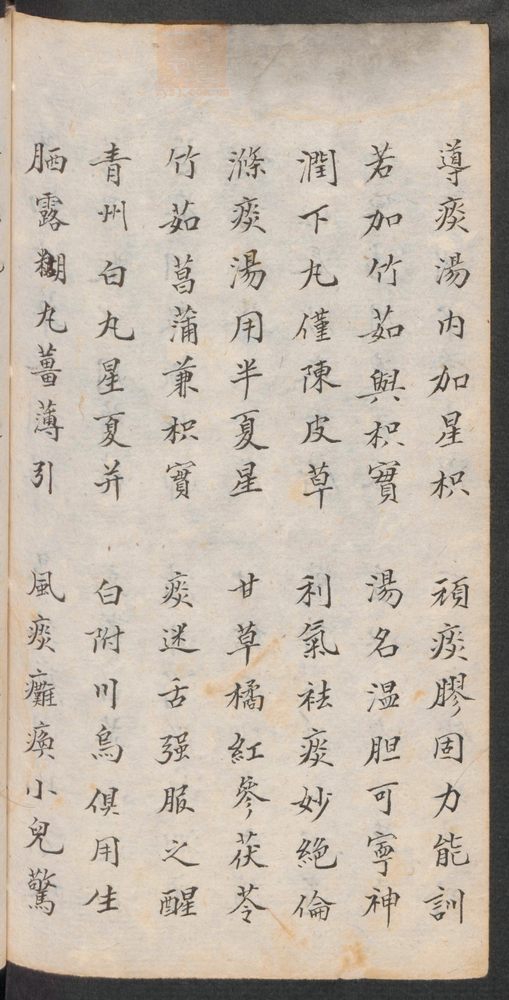 導痰湯内加星枳 頑痰膠固力能訓
若加竹茹與枳實 湯名温胆可寧神
潤下丸僅陳皮草 利氣祛痰妙絶倫
滌痰湯用半夏星 甘草橘紅參茯苓
竹茹菖蒲兼枳實 痰迷舌强服之醒
青州白丸星夏并 白附川烏俱用生
晒露糊丸薑薄引 風痰癱瘓小兒驚